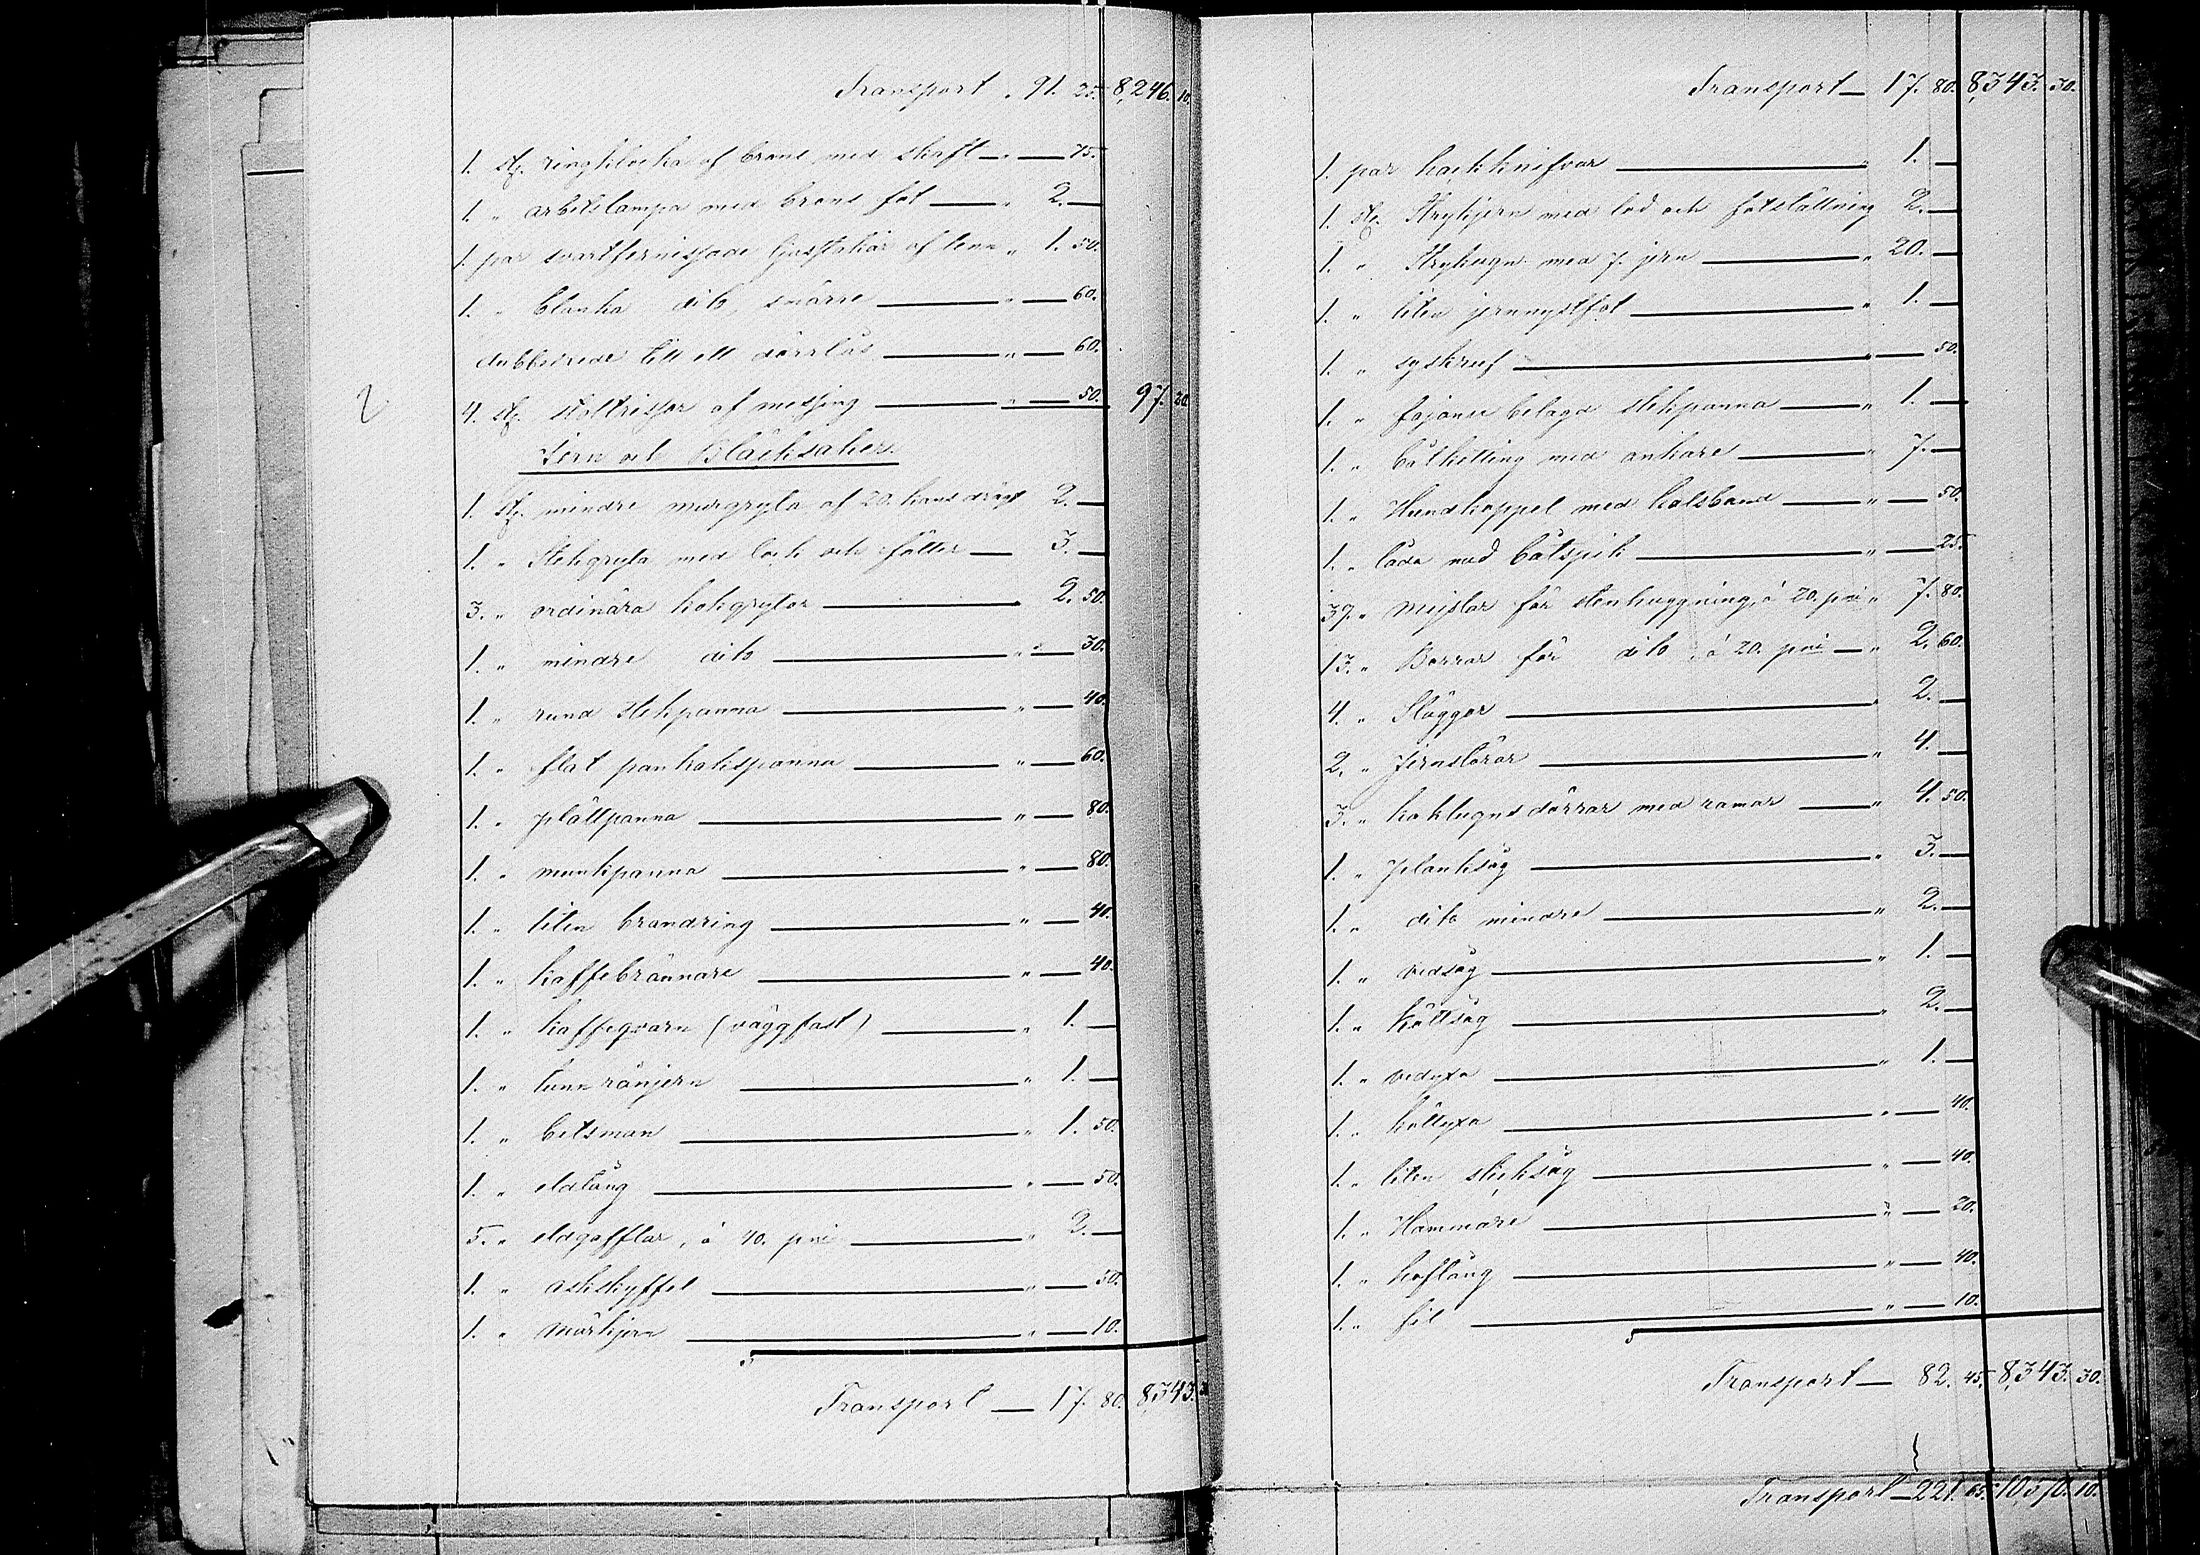 Transport . 91. 25. 8,246. 10.
1. st. ringklocka af brons med skaft — " — 75.
1. " arbetslampa med brons fot — " 2. —
1. par svartfernissade ljusstakar af tenn " 1. 50.
1. " blanka dito, smärre — " — 60.
dubbelrede till ett dörrlås — " — 60.
4. st. stoltrissor af messing — " — 50. 97. 20.
2
Jern och Bläcksaker.
1. st. mindre murgryta af 20. kans drägt 2. —
1. " Stekgryta med lock och fötter — 3. —
3. " ordinära kokgrytor — " 2. 50.
1. " mindre dito — " — 30.
1. " rund stekpanna — " — 40.
1. " flat pankakspanna — " — 60.
1. " plättpanna — " — 80.
1. " munkpanna — " — 80.
1. " liten brandring — " — 40.
1. " kaffebrännare — " — 40.
1. " kaffeqvarn (väggfast) — " 1. —
1. " tunn rånjern — " 1. —
1. " betsman — " 1. 50.
1. " eldtång — " — 50.
5. " eldgafflar, á 40. pni — " 2. —
1. " askskyffel — " — 50.
1. " märkjern — " — 10.
Transport — 17. 80. 8,343. 30
Transport — 17. 80. 8,343. 30.
1. par hackknifvar — " 1. —
1. st. Strykjern med lod och fotställning 2. —
1. " Strykugn med 7. jern — " 20. —
1. " liten jernnystfot — " 1. —
1. " syskruf — " — 50.
1. " fajance belagd stekpanna — " 1. —
1. " båtkätting med ankare — " 7. —
1. " Hundkoppel med halsband — " — 50.
1. " låda med båtspik — " — 25.
37. " Mejslar för stenhuggning, á 20. pni " 7. 80.
13. " Borrar för dito, á 20. pni — " 2. 60.
4. " Släggor — " 2. —
2. " Jernstörar — " 4. —
3. " kakkugnsdörrar med ramar — " 4. 50.
1. " planksåg — " 3. —
1. " dito mindre — " 2. —
1. " vedsåg — " 1. —
1. " köttsåg — " 2. —
1. " vedyxa — " 1. —
1. " köttyxa — " — 40.
1. " liten sticksåg — " — 40.
1. " Hammare — " — 20.
1. " hoftång — " — 40.
1. " fil — " — 10.
Transport — 82. 45. 8,343. 30.
Transport — 221. 65. 10570. 10.